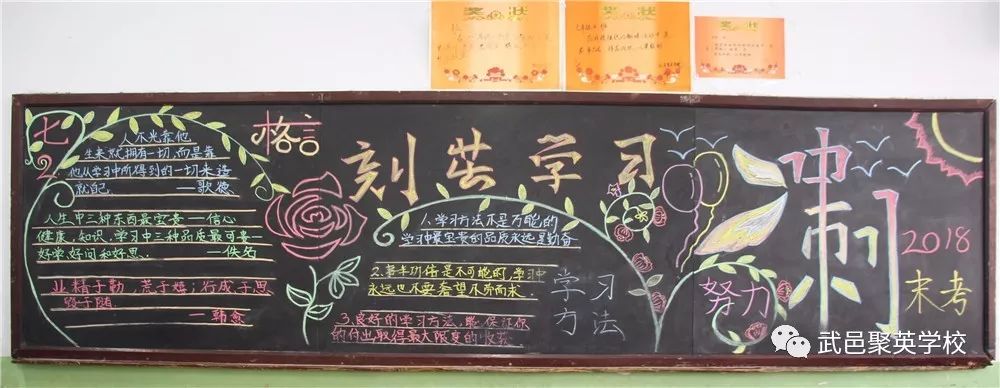 奖状
奖状
奖状
七
2
格言
人不光靠他
生来就拥有一切,而是靠
他从学习中所得到的一切来造
就自己。 ——歌德
人生中三种东西最宝贵——信心
健康,知识,学习中三种品质最可贵
好学,好问和好思. ——佚名
业精于勤,荒于嬉;行成于思
毁于随.
——韩愈
刻苦学习
1、学习方法不是万能的
学习中最宝贵的品质永远是勤奋
2.著丰功伟是不可能的,学习中
永远也不要奢望不劳而求.
3、良好的学习方法,能保证你
的付出取得最大限度的收获
学习
方法
冲刺
努力
2018
末考
武邑聚英学校